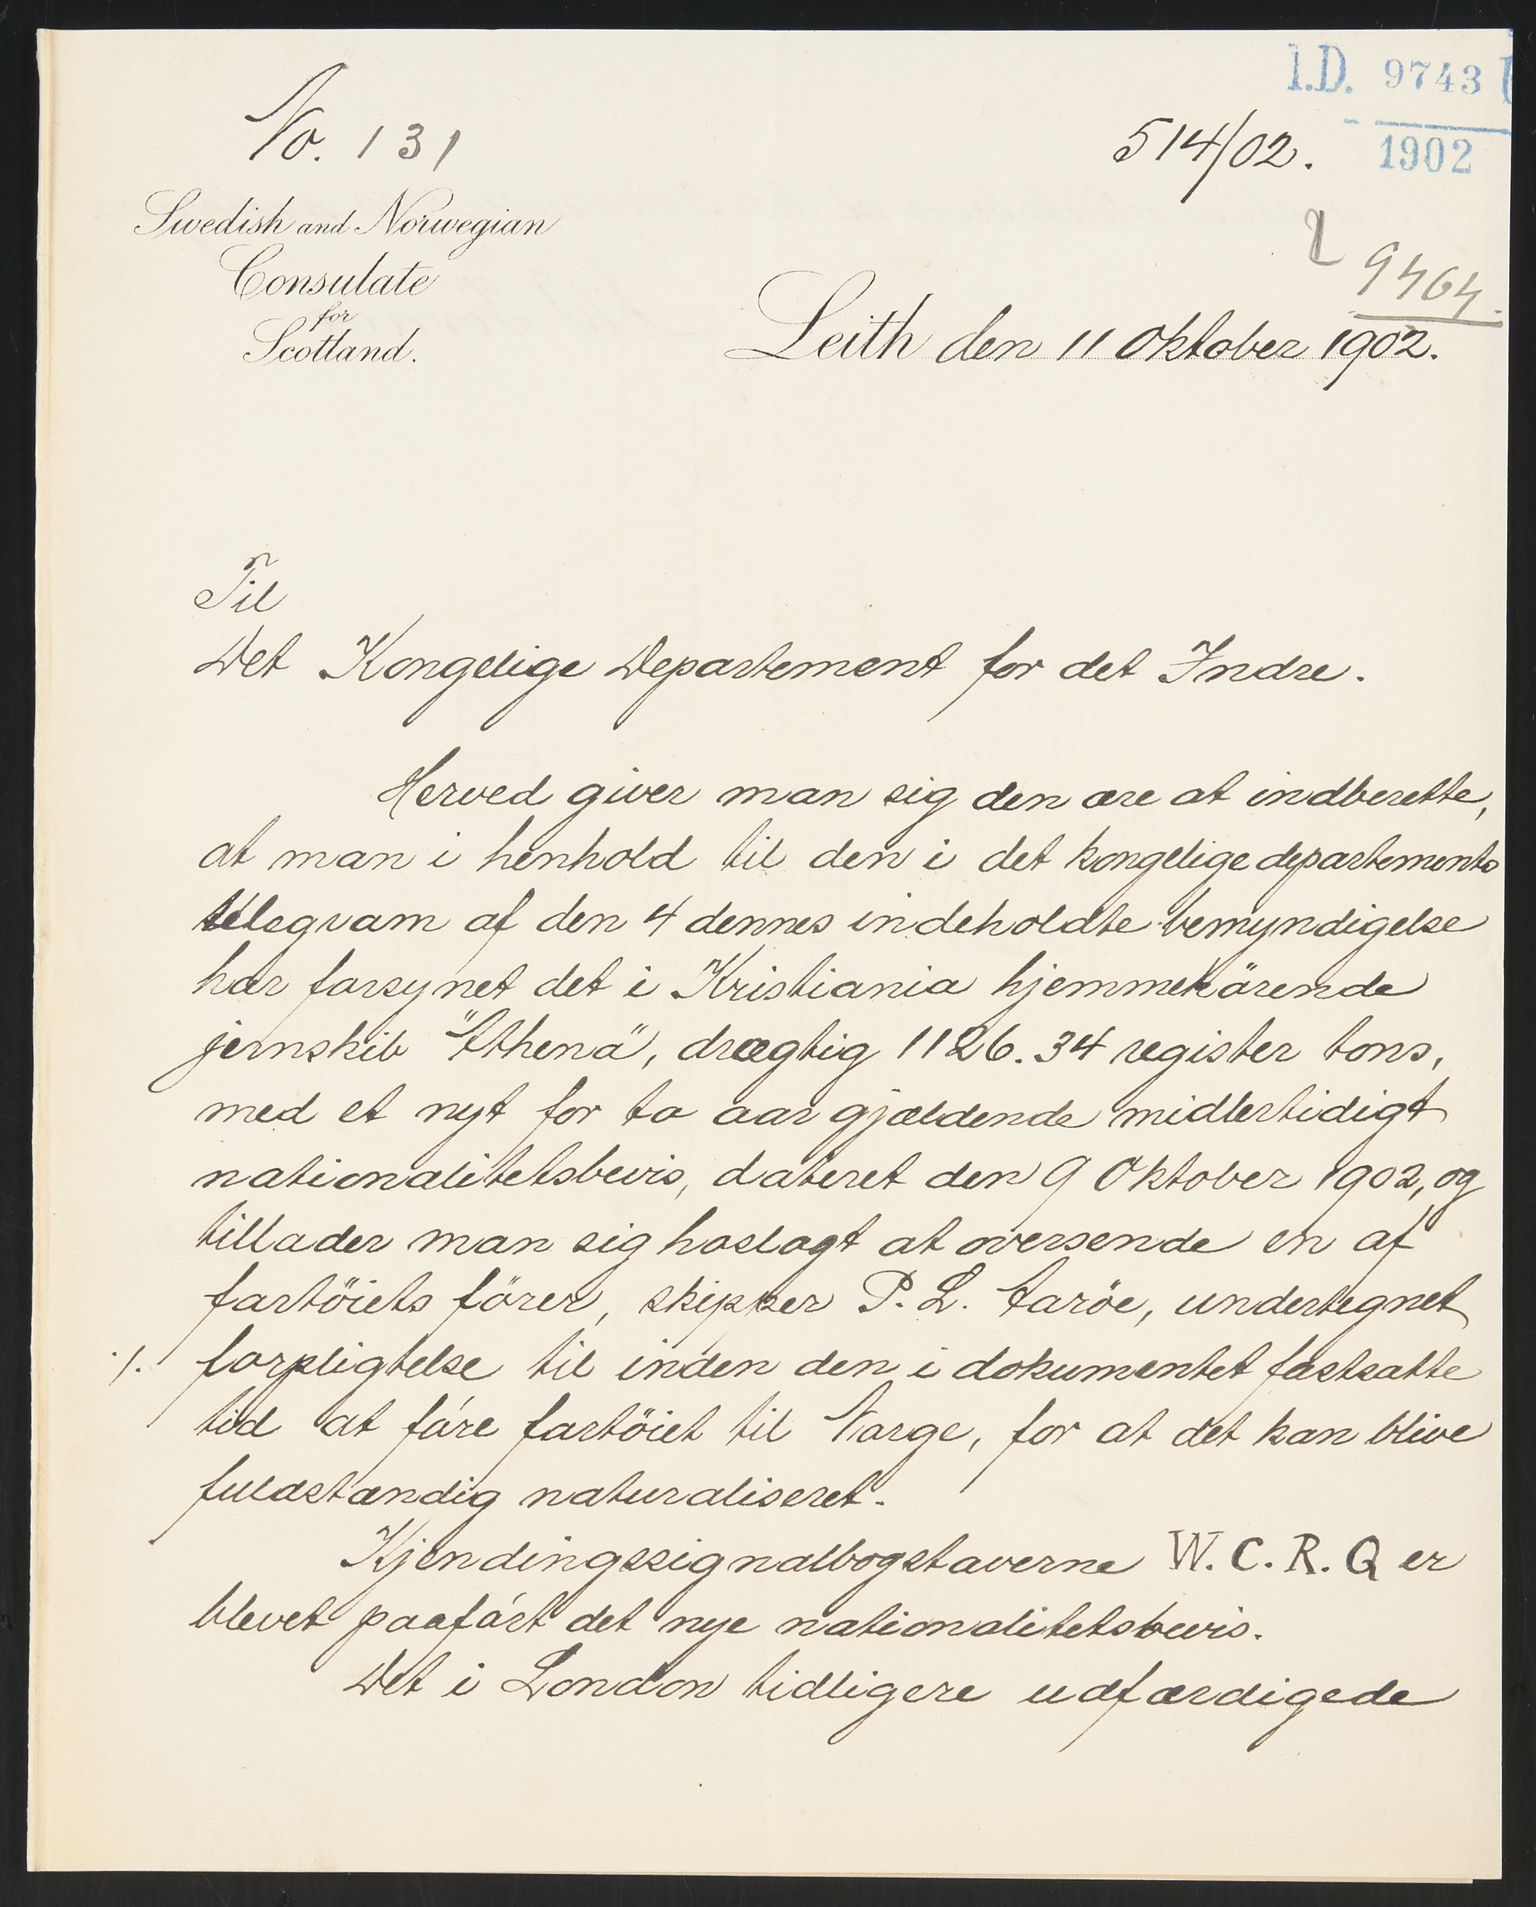 I.D. 9743
1902
No. 131
514/02.
Swedish and Norwegian
Consulate
for
Scotland.
9464.
Leith den 11 Oktober 1902.
Til
Det Kongelige Departement for det Indre.
Herved giver man sig den ære at indberette,
at man i henhold til den i det kongelige departements
telegram af den 4 dennes indeholdte bemyndigelse
har forsynet det i Kristiania hjemmehörende
jernskib "Athena", drægtig 1126.34 register tons,
med et nyt for to aar gjældende midlertidigt
nationalitetsbevis, dateret den 9 Oktober 1902, og
tillader man sig hoslagt at oversende en af
fartöiets förer, skipper P. L. Aaröe, undertegnet
./. forpligtelse til inden den i dokumentet fastsatte
tid at före fartöiet til Norge, for at det kan blive
fuldstændig naturaliseret.
Kjendingssignalbogstaverne W.C.R.Q er
blevet paaført det nye nationalitetsbevis.
Det i London tidligere udfærdigede